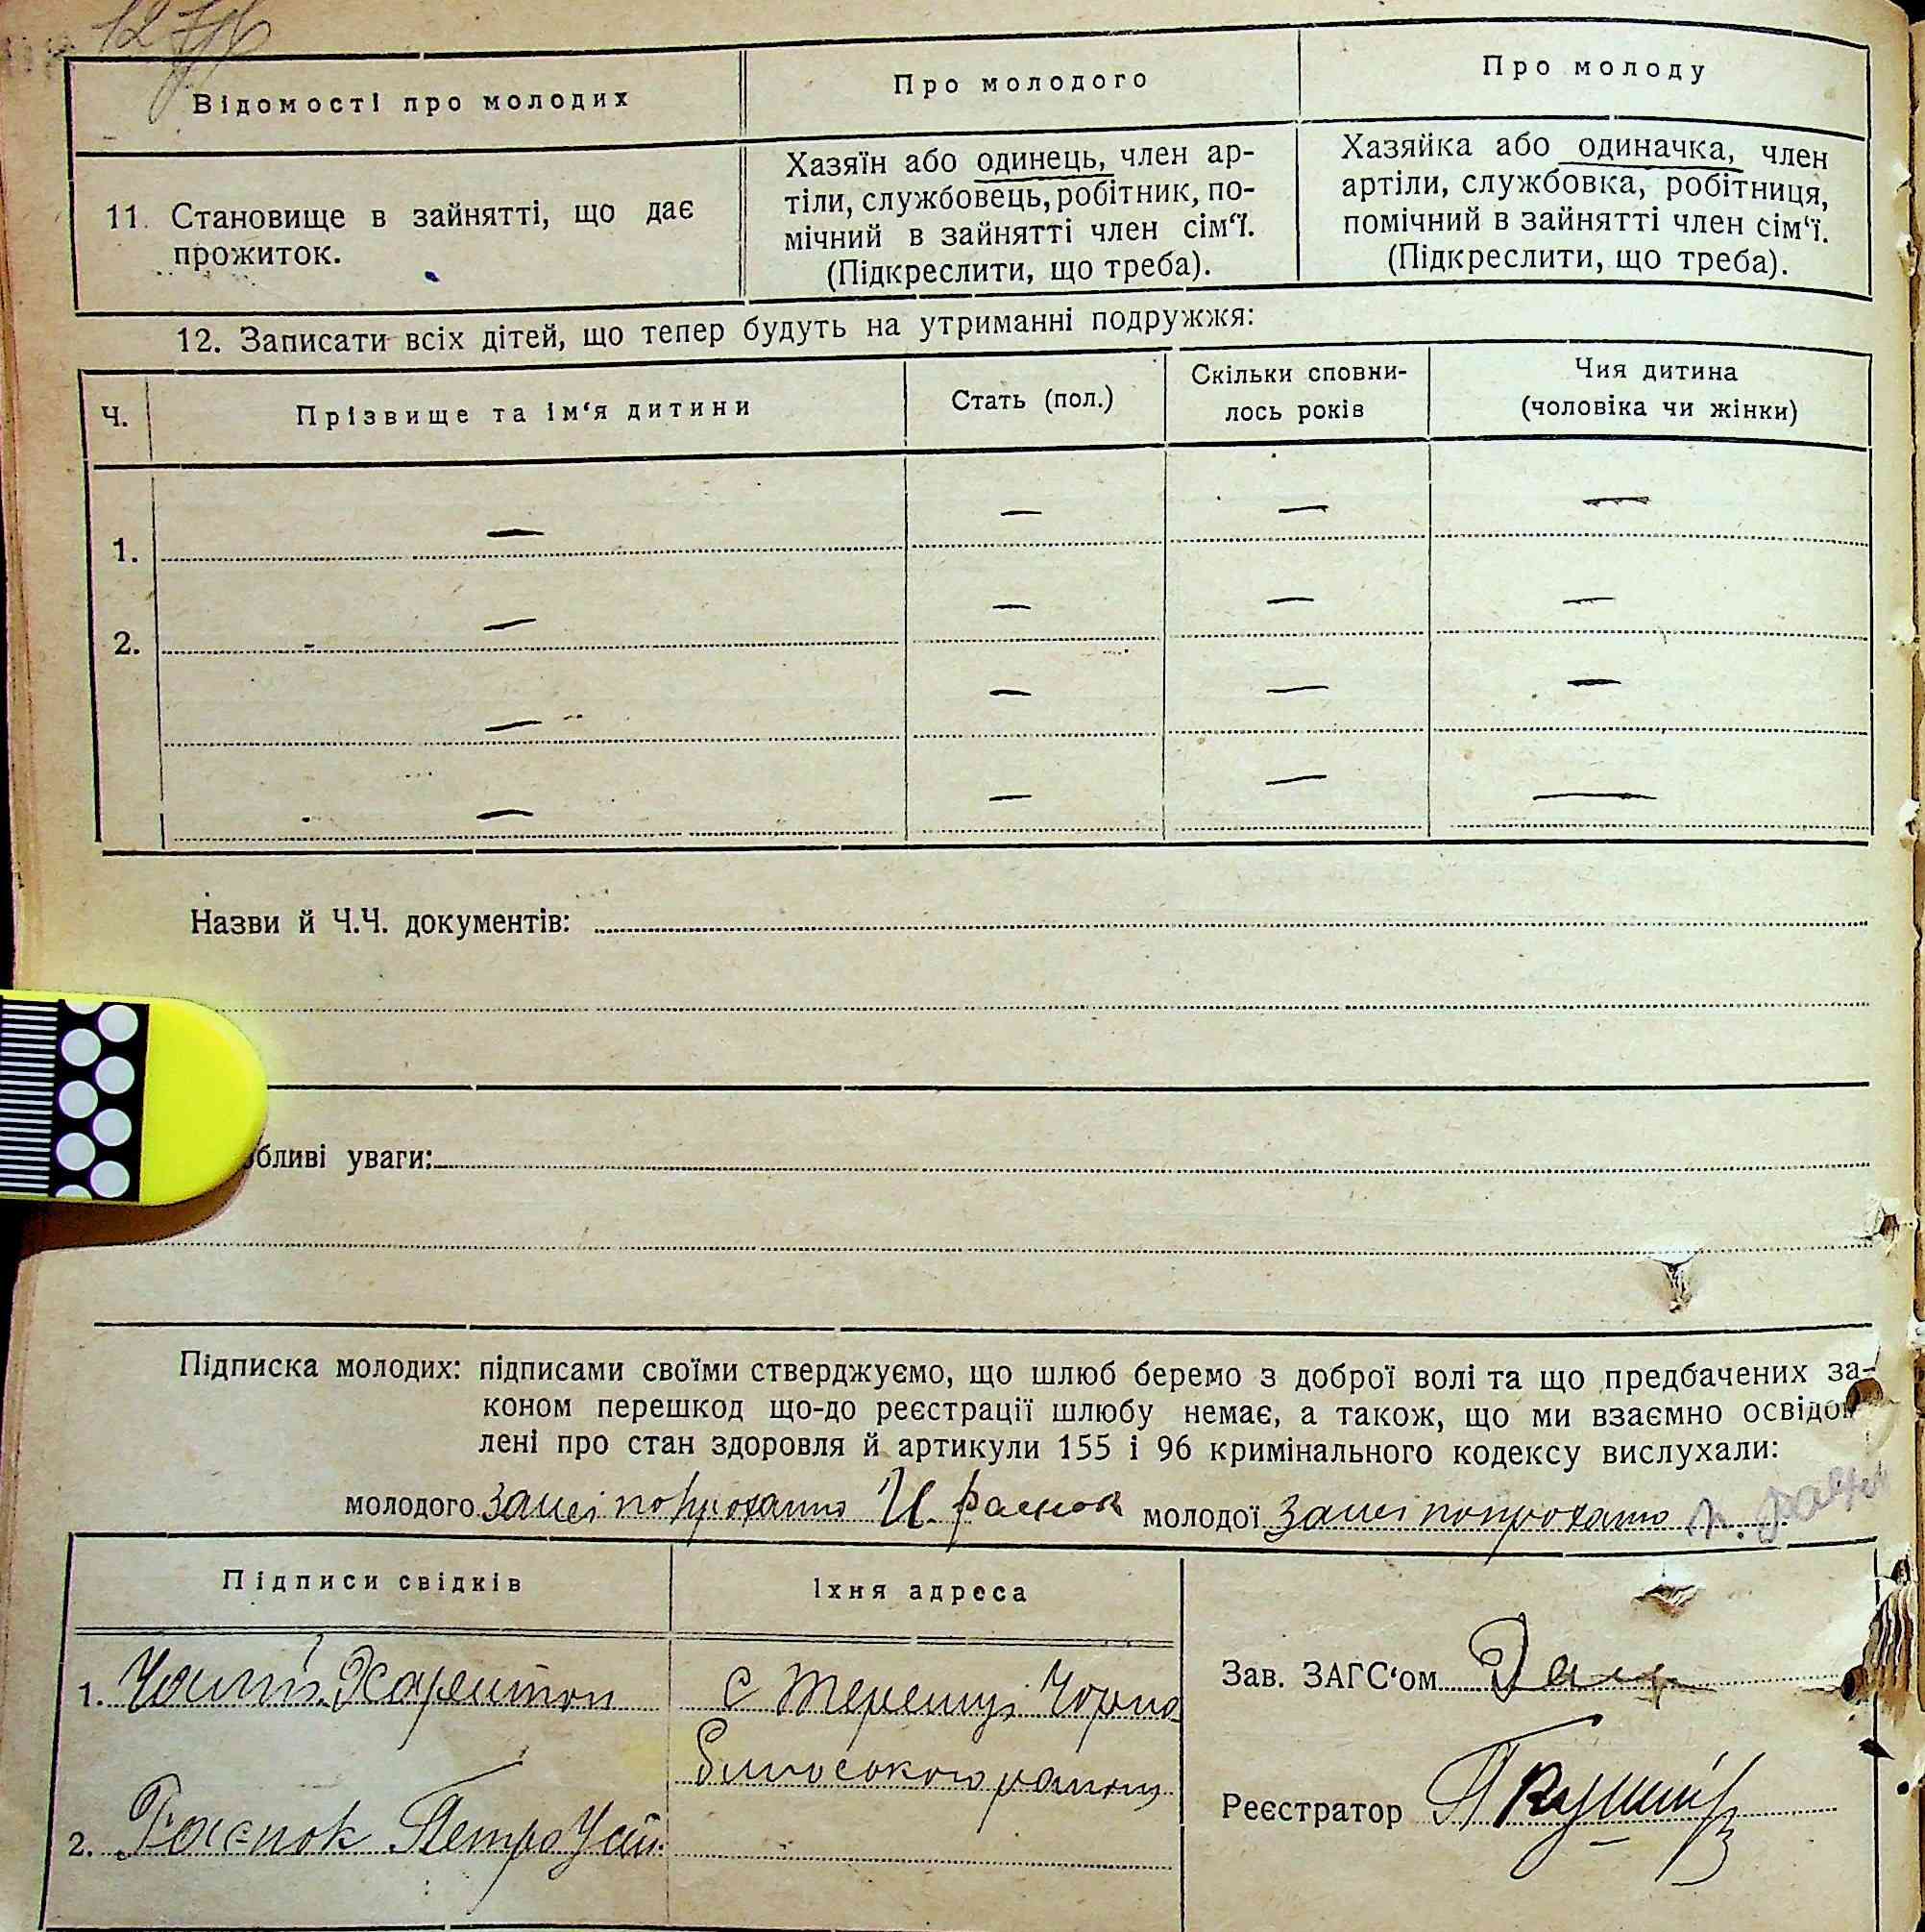 Відомості про молодих
Про молодого
Про молоду
11. Становище в зайнятті, що дає
прожиток.
Хазяїн або одинець, член ар-
тіли, службовець, робітник, по-
мічний в зайнятті член сім‘ї.
(Підкреслити, що треба).
Хазяйка або одиначка, член
артіли, службовка, робітниця,
помічний в зайнятті член сім‘ї.
(Підкреслити, що треба).
12. Записати всіх дітей, що тепер будуть на утриманні подружжя:
Ч.
Прізвище та ім‘я дитини
Стать (пол.)
Скільки сповни-
лось років
Чия дитина
(чоловіка чи жінки)
1. — — — —
2. — — — —
— — — —
— — — —
Назви й Ч.Ч. документів:
бливі уваги:
Підписка молодих: підписами своїми стверджуємо, що шлюб беремо з доброї волі та що предбачених за-
коном перешкод що-до реєстрації шлюбу немає, а також, що ми взаємно освідом
лені про стан здоровля й артикули 155 і 96 кримінального кодексу вислухали:
молодого молодої
Підписи свідків
Їхня адреса
1. Харитон
с Теремці Чорно
бильського району
2. Петро
Зав. ЗАГС‘ом
Реєстратор Кушнір